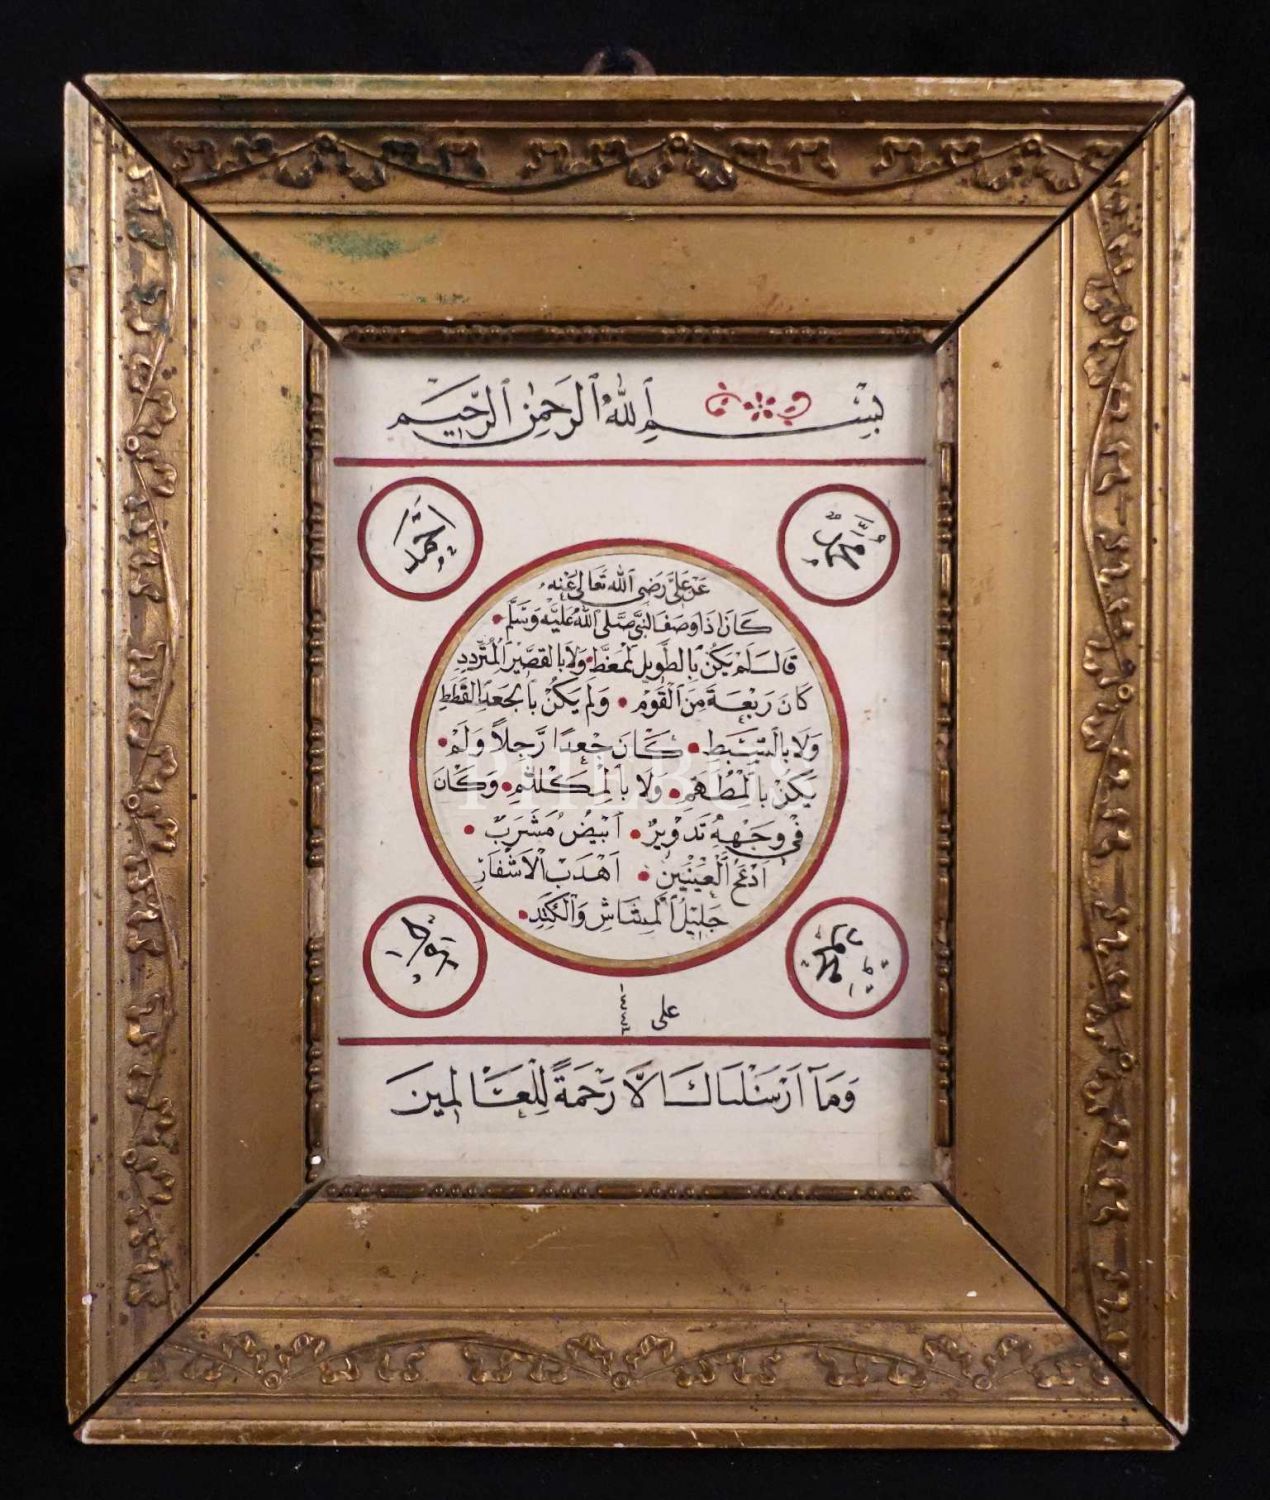 بِسْمِ ٱللهِ ٱلرَّحْمٰنِ ٱلرَّحِيمِ
مُحَمَّد
عَنْ عَلِيٍّ رَضِيَ ٱللهُ تَعَالىٰ عَنْهُ
كَانَ اِذَا وَصَفَ النَّبِيَّ صَلَّى اللهُ عَلَيْهِ وَسَلَّمَ
قَالَ لَمْ يَكُنْ بِالطَّوِيلِ الْمُمَغَّطِ وَلَا بِالْقَصِيرِ الْمُتَرَدِّدِ
كَانَ رَبْعَةً مِنَ ٱلْقَوْمِ وَلَمْ يَكُنْ بِالْجَعْدِ الْقَطَطِ
وَلَا بِالسَّبِطِ كَانَ جَعْدًا رَجِلًا وَلَمْ
يَكُنْ بِالْمُطَهَّمِ وَلَا بِالْمُكَلْثَمِ وَكَانَ
فِي وَجْهِهِ تَدْوِيرٌ اَبْيَضُ مُشْرَبٌ
اَدْعَجُ الْعَيْنَيْنِ اَهْدَبُ الْاَشْفَارِ
جَلِيلُ الْمُشَاشِ وَالْكَتَدِ
على
وَمَآ اَرْسَلْنَاكَ اِلَّا رَحْمَةً لِلْعَالَمِينَ
PHEBUS